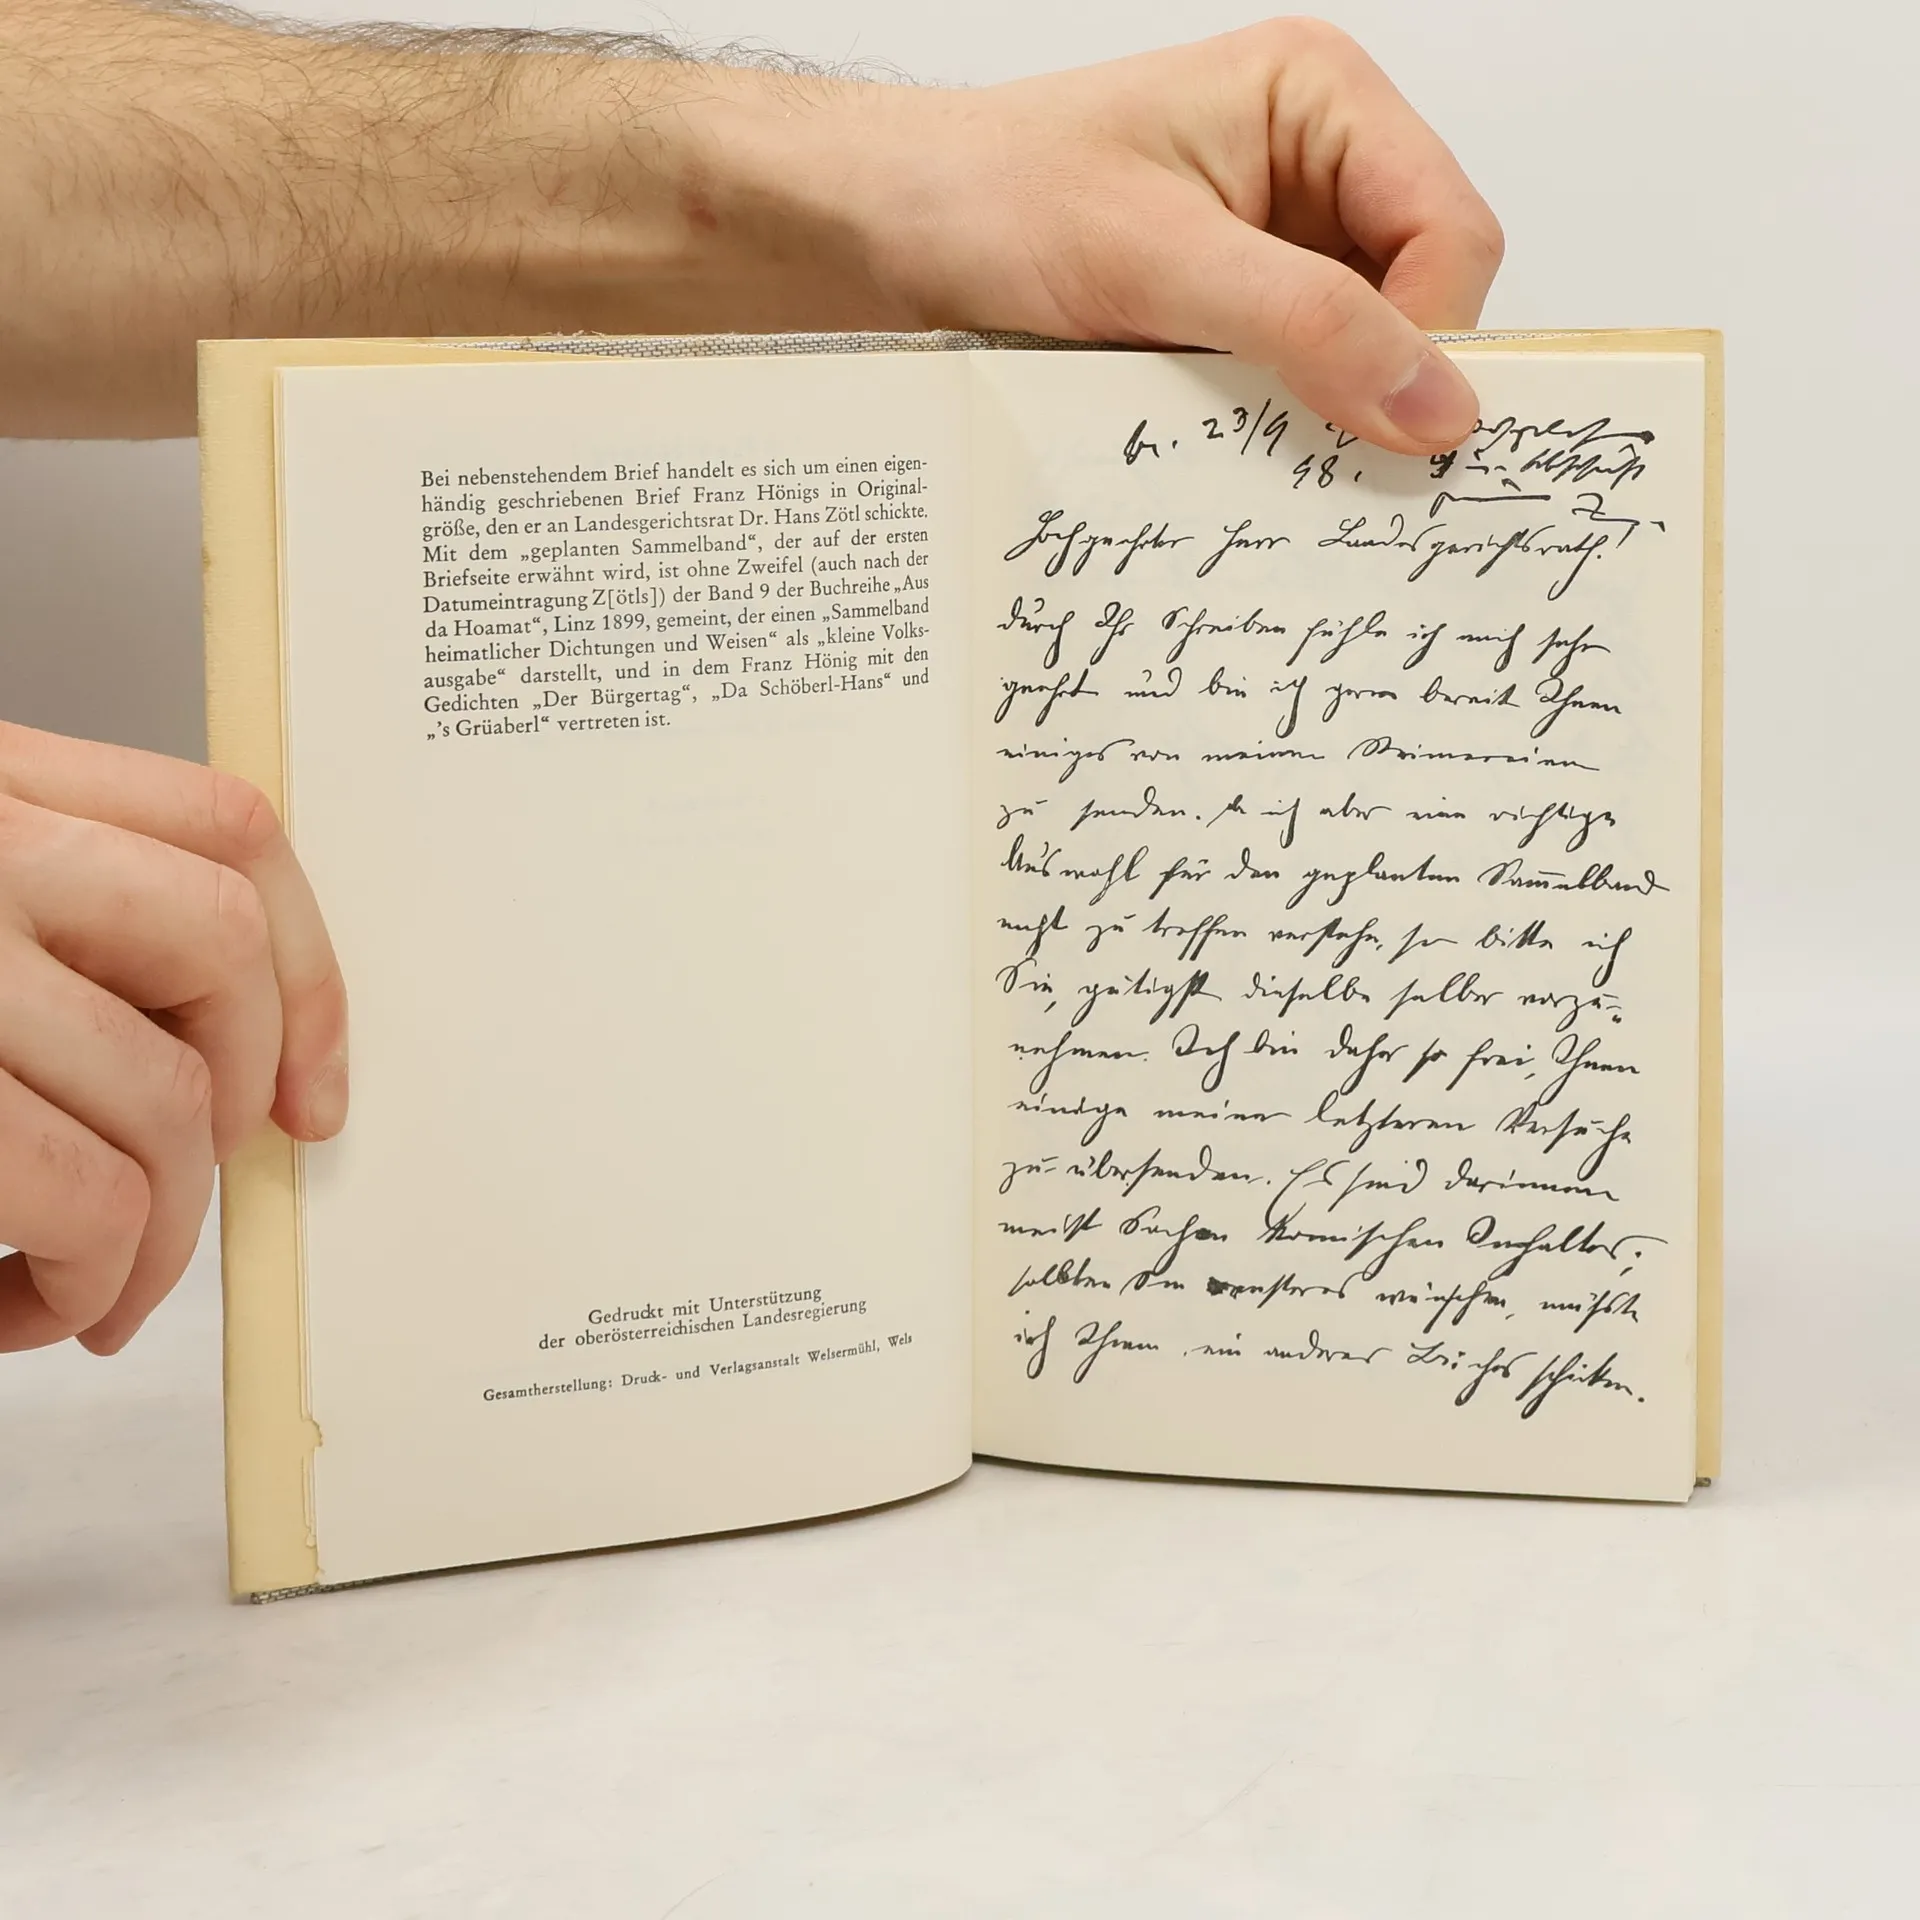 Bei nebenstehendem Brief handelt es sich um einen eigen-
händig geschriebenen Brief Franz Hönigs in Original-
größe, den er an Landesgerichtsrat Dr. Hans Zötl schickte.
Mit dem „geplanten Sammelband“, der auf der ersten
Briefseite erwähnt wird, ist ohne Zweifel (auch nach der
Datumeintragung Z[ötls]) der Band 9 der Buchreihe „Aus
da Hoamat“, Linz 1899, gemeint, der einen „Sammelband
heimatlicher Dichtungen und Weisen“ als „kleine Volks-
ausgabe“ darstellt, und in dem Franz Hönig mit den
Gedichten „Der Bürgertag“, „Da Schöberl-Hans“ und
„’s Grüaberl“ vertreten ist.
Gedruckt mit Unterstützung
der oberösterreichischen Landesregierung
Gesamtherstellung: Druck- und Verlagsanstalt Welsermühl, Wels
23/9
98.
Hochgeehrter Herr Landesgerichtsrath!
durch Ihr Schreiben fühle ich mich sehr
geehrt und bin ich gerne bereit Ihnen
einiges von meinen Reimereien
zu senden. Da ich aber eine richtige
Auswahl für den geplanten Sammelband
nicht zu treffen verstehe, so bitte ich
Sie, gütigst dieselbe selber vorzu-
nehmen. Ich bin daher so frei, Ihnen
einige meiner letzteren Versuche
zu übersenden. Es sind darinnen
meist Sachen komischen Inhaltes;
sollten Sie ernsteres wünschen, müsste
ich Ihnen ein anderes Büches schicken.